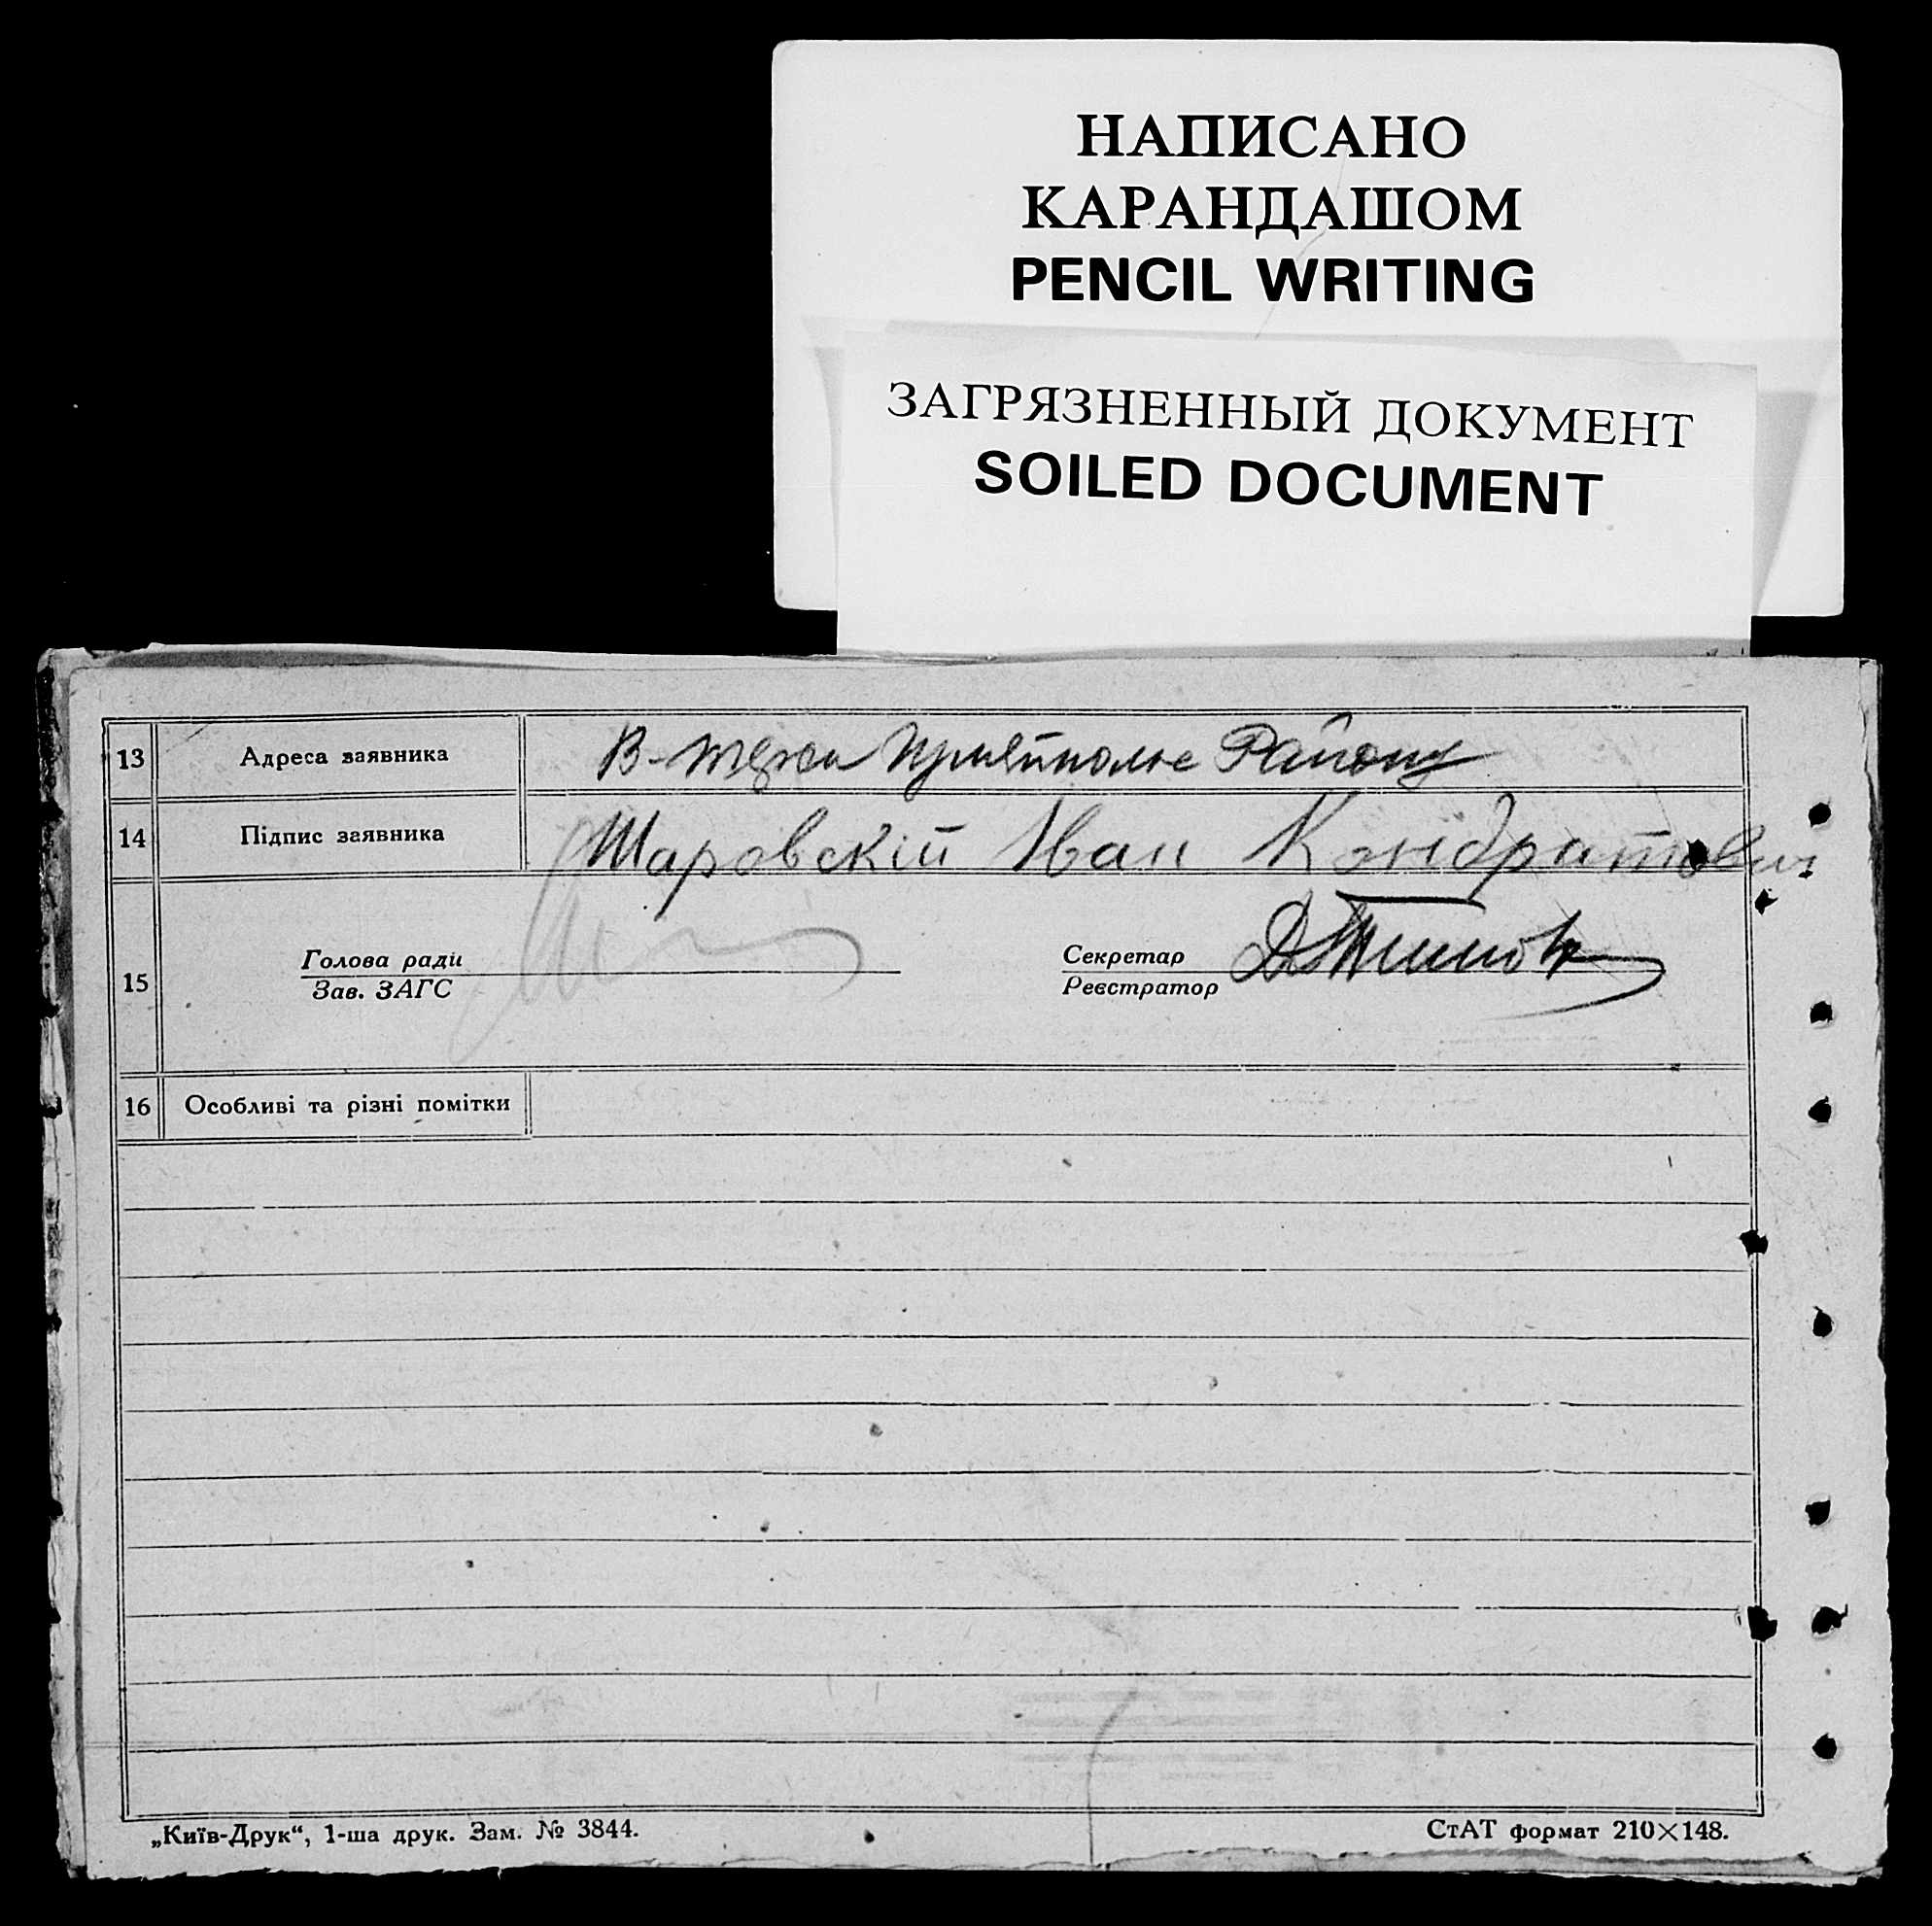 НАПИСАНО
КАРАНДАШОМ
PENCIL WRITING
ЗАГРЯЗНЕННЫЙ ДОКУМЕНТ
SOILED DOCUMENT
13 Адреса заявника Району
14 Підпис заявника Шаровскій Іван Кондратович
15 Голова ради Секретар
Зав. ЗАГС Реєстратор
16 Особливі та різні помітки
„Київ-Друк“, 1-ша друк. Зам. № 3844. СтАТ формат 210×148.